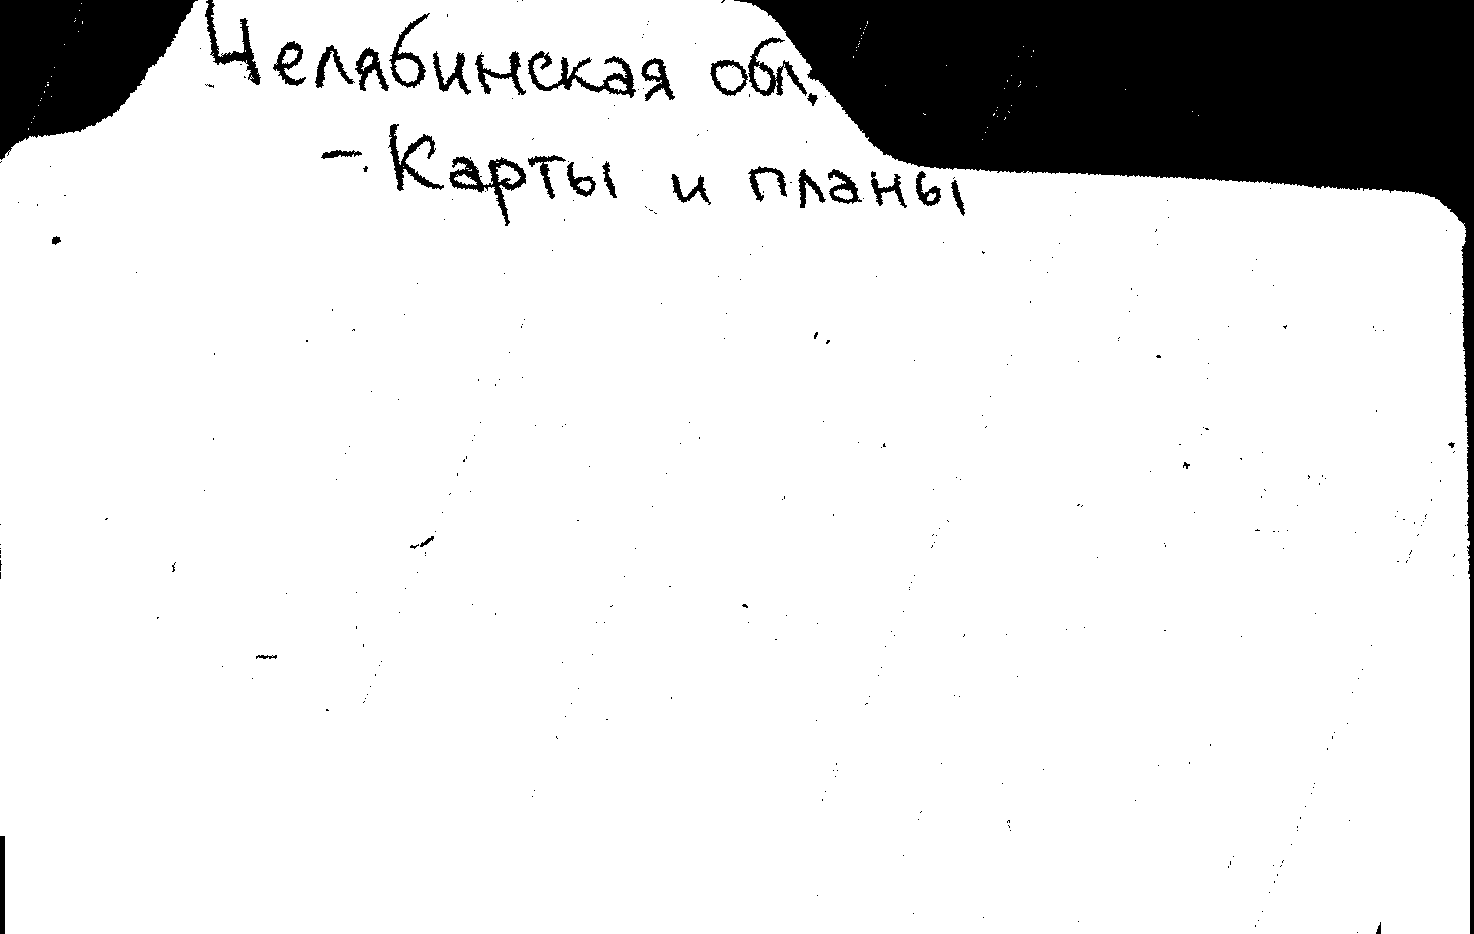 Челябинская обл.
- Карты и планы